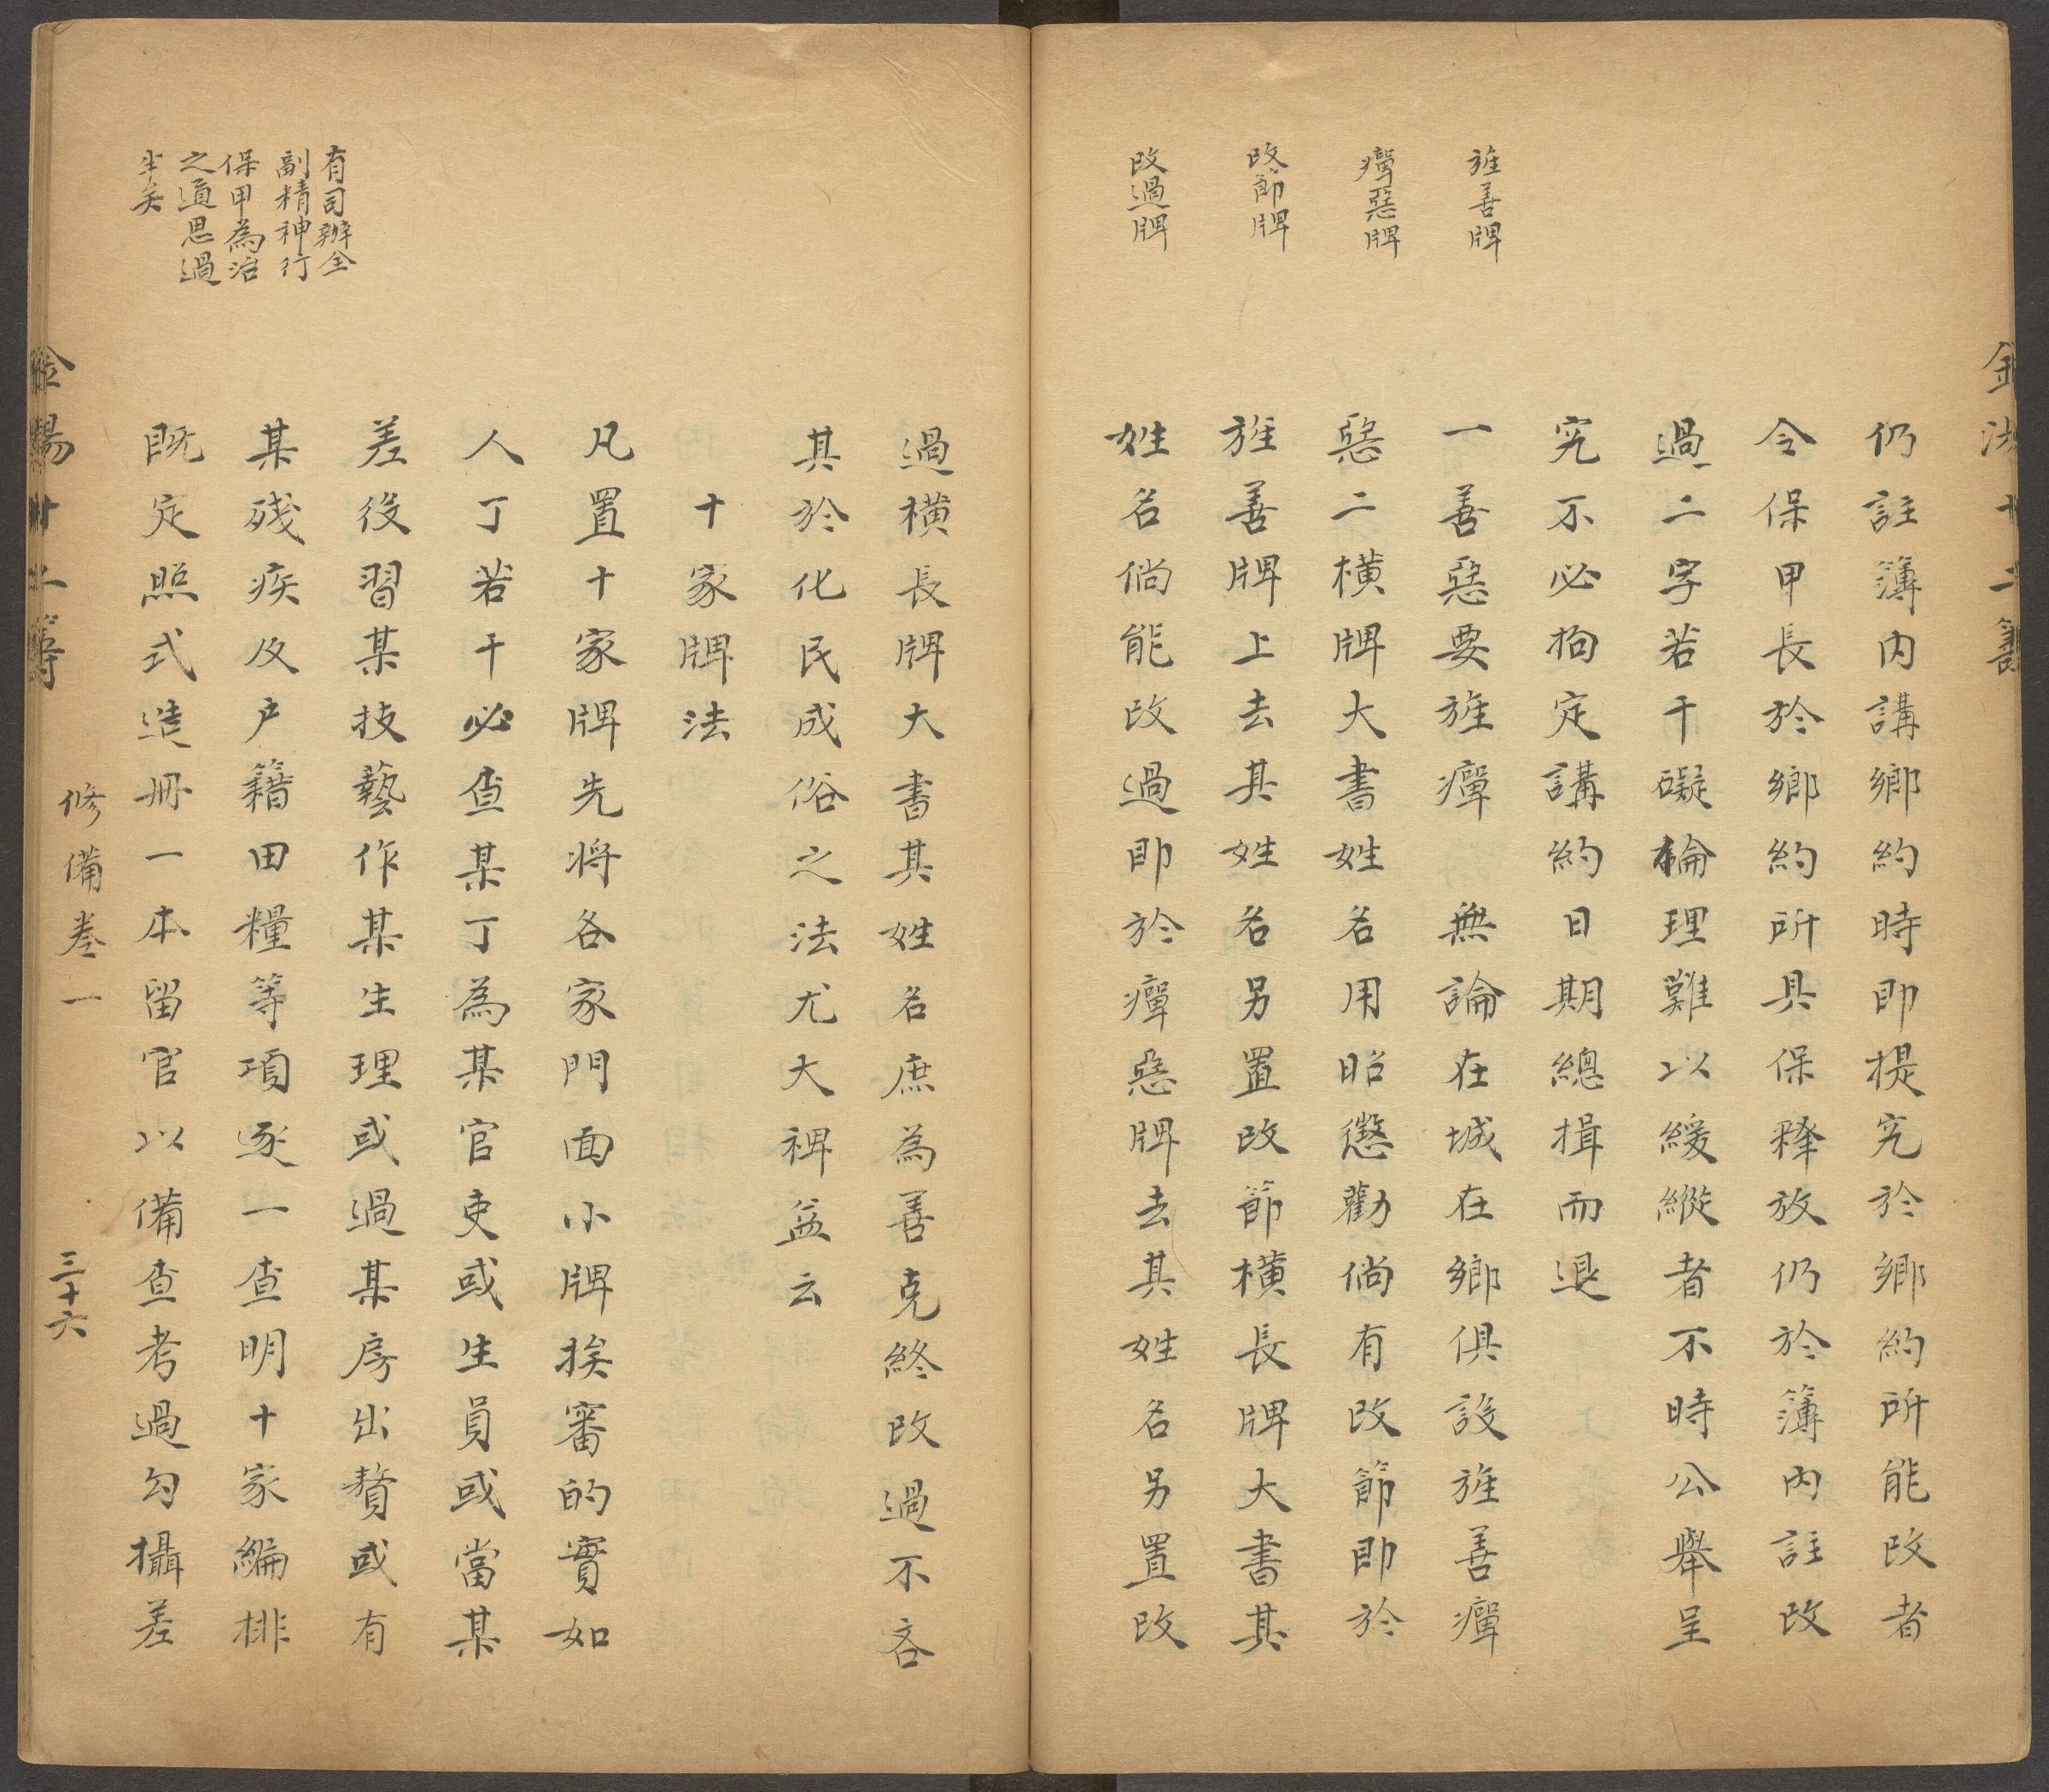 旌善牌
癉惡牌
改節牌
改過牌
仍註簿內講鄉約時即提究於鄉約所能改者
令保甲長於鄉約所具保釋放仍於簿內註改
過二字若干礙倫理難以緩縱者不時公舉呈
究不必拘定講約日期總揖而退
一善惡要旌癉 無論在城在鄉俱設旌善癉
惡二橫牌大書姓名用昭懲勸倘有改節即於
旌善牌上去其姓名另置改節橫長牌大書其
姓名倘能改過即於癉惡牌去其姓名另置改
有司辦全
副精神行
保甲為治
之道思過
半矣
過橫長牌大書其姓名庶為善克終改過不吝
其於化民成俗之法尤大裨益云
十家牌法
凡置十家牌先將各家門面小牌挨審的實如
人丁若干必查某丁為某官吏或生員或當某
差役習某技藝作某生理或過某房出贅或有
某殘疾及户籍田糧等項逐一查明十家編排
既定照式造冊一本留官以備查考過勾攝差
修備卷一
三十六